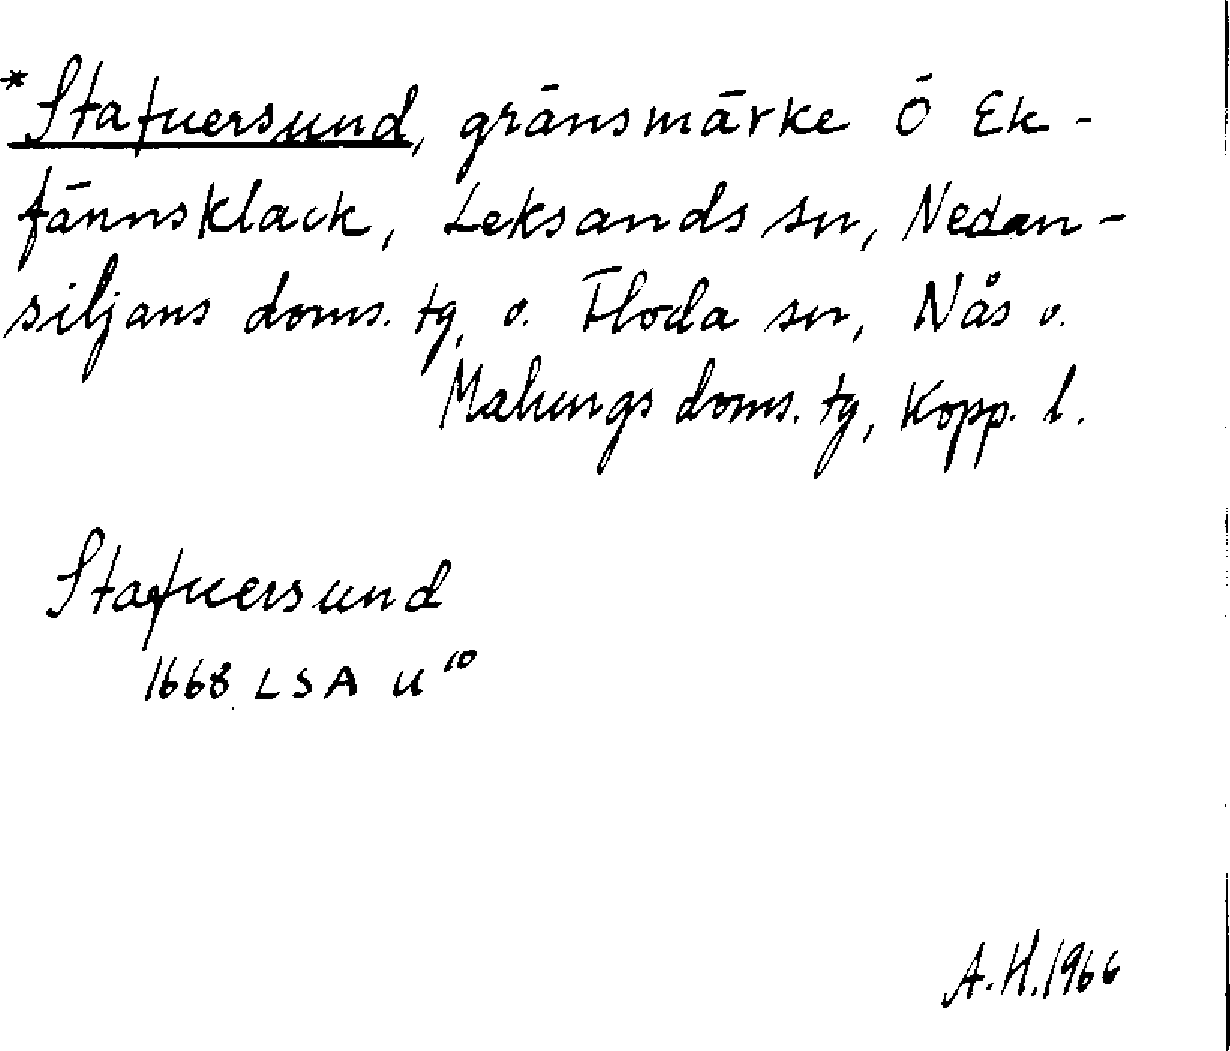 *Stafuersund, gränsmärke Ö Ek-
fännsklack, Leksands sn, Nedan-
siljans doms. tg, o. Floda sn, Nås o.
Malungs doms. tg, Kopp. l.
Stafuersund
1668 LSA U¹⁰
A.H. 1966